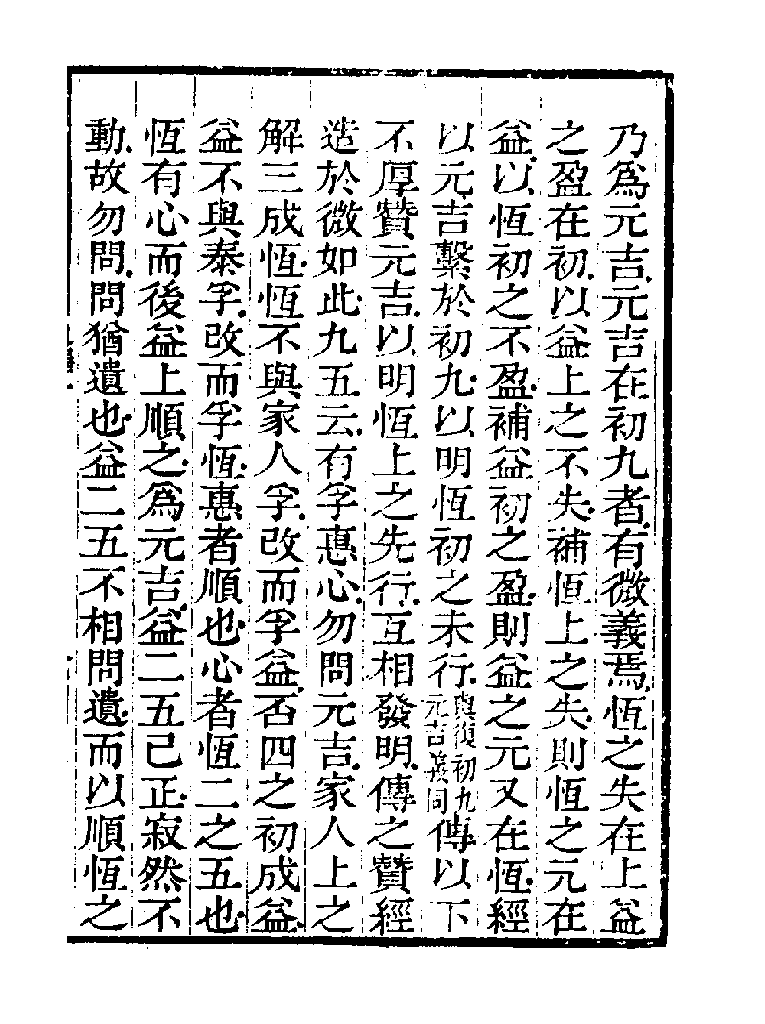 乃爲元吉元吉在初九者有微義焉恆之失在上益
之盈在初以益上之不失補恆上之失則恆之元在
益以恆初之不盈補益初之盈則益之元又在恆經
以元吉繫於初九以明恆初之未行與復初九元吉義同傳以下
不厚贊元吉以明恆上之先行互相發明傳之贊經
造於微如此九五云有孚惠心勿問元吉家人上之
解三成恆恆不與家人孚改而孚益否四之初成益
益不與泰孚改而孚恆惠者順也心者恆二之五也
恆有心而後益上順之爲元吉益二五已正寂然不
動故勿問問猶遺也益二五不相問遺而以順恆之